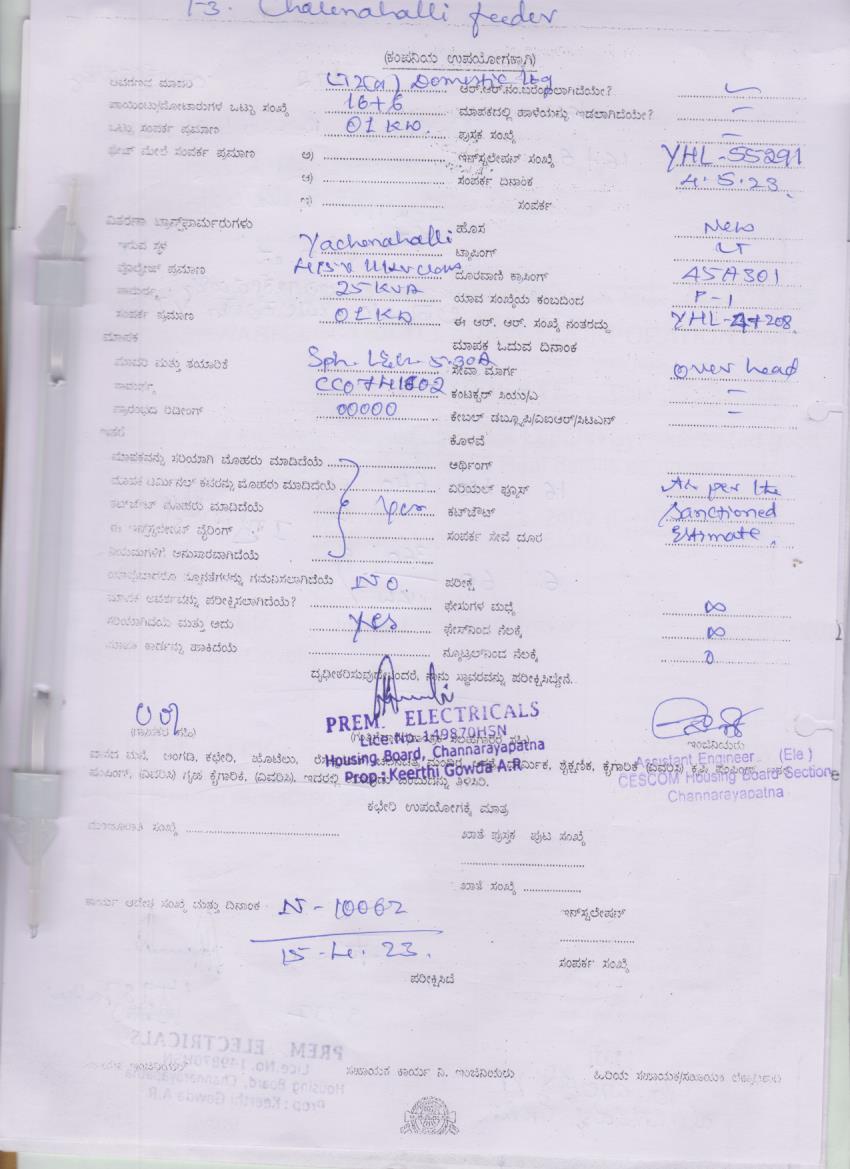 feeder
(ಕಂಪನಿಯ ಉಪಯೋಗಕ್ಕಾಗಿ)
Domestic ltg ಆರ್.ಆರ್.ನಂ.ಬರೆಯಲಾಗಿದೆಯೇ?
16+6 ಮಾಪಕದಲ್ಲಿ ಹಾಳೆಯನ್ನು ಇಡಲಾಗಿದೆಯೇ? –
ಒಟ್ಟು ಸಂಪರ್ಕ ಪ್ರಮಾಣ 01 KW. ಪುಸ್ತಕ ಸಂಖ್ಯೆ –
ಮೇಲೆ ಸಂಪರ್ಕ ಪ್ರಮಾಣ ಅ) ಇನ್‌ಸ್ಟಲೇಷನ್ ಸಂಖ್ಯೆ YHL-55291
ಆ) ಸಂಪರ್ಕ ದಿನಾಂಕ 4.5.23.
ಇ) ಸಂಪರ್ಕ
ವಿತರಣಾ ಟ್ರಾನ್ಸ್‌ಫಾರ್ಮರುಗಳು ಹೊಸ New
ಇರುವ ಸ್ಥಳ Yachenahalli ಟ್ಯಾಪಿಂಗ್ LT
ವೋಲ್ಟೇಜ್ ಪ್ರಮಾಣ ದೂರವಾಣಿ ಕ್ರಾಸಿಂಗ್ 45A301
ಸಾಮರ್ಥ್ಯ 25 KVA ಯಾವ ಸಂಖ್ಯೆಯ ಕಂಬದಿಂದ P-1
ಸಂಪರ್ಕ ಪ್ರಮಾಣ 01 KW ಈ ಆರ್. ಆರ್. ಸಂಖ್ಯೆ ನಂತರದ್ದು
ಮಾಪಕ ಮಾಪಕ ಓದುವ ದಿನಾಂಕ
ಮಾದರಿ ಮತ್ತು ತಯಾರಿಕೆ ಸೇವಾ ಮಾರ್ಗ over head
ಸಾಮರ್ಥ್ಯ ಕಂಡಕ್ಟರ್ ಸಿಯು/ಎ –
ಪ್ರಾರಂಭದ ರಿಡೀಂಗ್ 00000 ಕೇಬಲ್ ಡಬ್ಲ್ಯೂಪಿ/ವಿಐಆರ್/ಸಿಟಿಎಸ್ –
ಇತರೆ ಕೊಳವೆ
ಮಾಪಕವನ್ನು ಸರಿಯಾಗಿ ಮೊಹರು ಮಾಡಿದೆಯೆ ಅರ್ಥಿಂಗ್
ಮಾಪಕ ಟರ್ಮಿನಲ್ ಕವರನ್ನು ಮೊಹರು ಮಾಡಿದೆಯೆ ಏರಿಯಲ್ ಫ್ಯೂಸ್ As per the
ಕಟ್‌ಔಟ್ ಮೊಹರು ಮಾಡಿದೆಯೆ yes ಕಟ್‌ಔಟ್ Sanctioned
ಈ ಇನ್‌ಸ್ಟಲೇಷನ್ ವೈರಿಂಗ್ ಸಂಪರ್ಕ ಸೇವೆ ದೂರ Estimate.
ನಿಯಮಗಳಿಗೆ ಅನುಸಾರವಾಗಿದೆಯೆ
ಯಾವುದಾದರೂ ನ್ಯೂನತೆಗಳನ್ನು ಗಮನಿಸಲಾಗಿದೆಯೆ NO ಪರೀಕ್ಷೆ
ಮಾಪಕ ಆವರ್ತವನ್ನು ಪರೀಕ್ಷಿಸಲಾಗಿದೆಯೆ? ಫೇಸುಗಳ ಮಧ್ಯೆ ∞
ಸರಿಯಾಗಿದೆಯೆ ಮತ್ತು ಅದು yes ಫೇಸ್‌ನಿಂದ ನೆಲಕ್ಕೆ ∞
ಮಾಪಕ ಕಾರ್ಡನ್ನು ಹಾಕಿದೆಯೆ ನ್ಯೂಟ್ರಲ್‌ನಿಂದ ನೆಲಕ್ಕೆ 0
ನಾನು ಸ್ಥಾವರವನ್ನು ಪರೀಕ್ಷಿಸಿದ್ದೇನೆ.
PREM ELECTRICALS
Lice.No. 149870HSN
Housing Board, Channarayapatna
Prop : Keerthi Gowda A.R
ಇಂಜಿನಿಯರು
Assistant Engineer (Ele )
CESCOM Housing Board Section
Channarayapatna
ವಾಸದ ಮನೆ, ಅಂಗಡಿ, ಕಛೇರಿ, ಹೋಟೆಲು, ಶೈಕ್ಷಣಿಕ, ಕೈಗಾರಿಕೆ (ವಿವರಿಸಿ)
ಪಂಪಿಂಗ್, (ವಿವರಿಸಿ) ಗೃಹ ಕೈಗಾರಿಕೆ, (ವಿವರಿಸಿ). ಇದರಲ್ಲಿ ತಿಳಿಸಿರಿ.
ಕಛೇರಿ ಉಪಯೋಗಕ್ಕೆ ಮಾತ್ರ
ಮಂಜೂರಾತಿ ಸಂಖ್ಯೆ ಖಾತೆ ಪುಸ್ತಕ ಪುಟ ಸಂಖ್ಯೆ
ಖಾತೆ ಸಂಖ್ಯೆ
ಕಾರ್ಯ ಆದೇಶ ಸಂಖ್ಯೆ ಮತ್ತು ದಿನಾಂಕ N-10062 ಇನ್‌ಸ್ಟಲೇಷನ್
15-4.23. ಸಂಪರ್ಕ ಸಂಖ್ಯೆ
ಪರೀಕ್ಷಿಸಿದೆ
ಇಂಜಿನಿಯರ್ ಸಹಾಯಕ ಕಾರ್ಯ ನಿ. ಇಂಜಿನಿಯರು ಹಿರಿಯ ಸಹಾಯಕ/ಸಹಾಯಕ